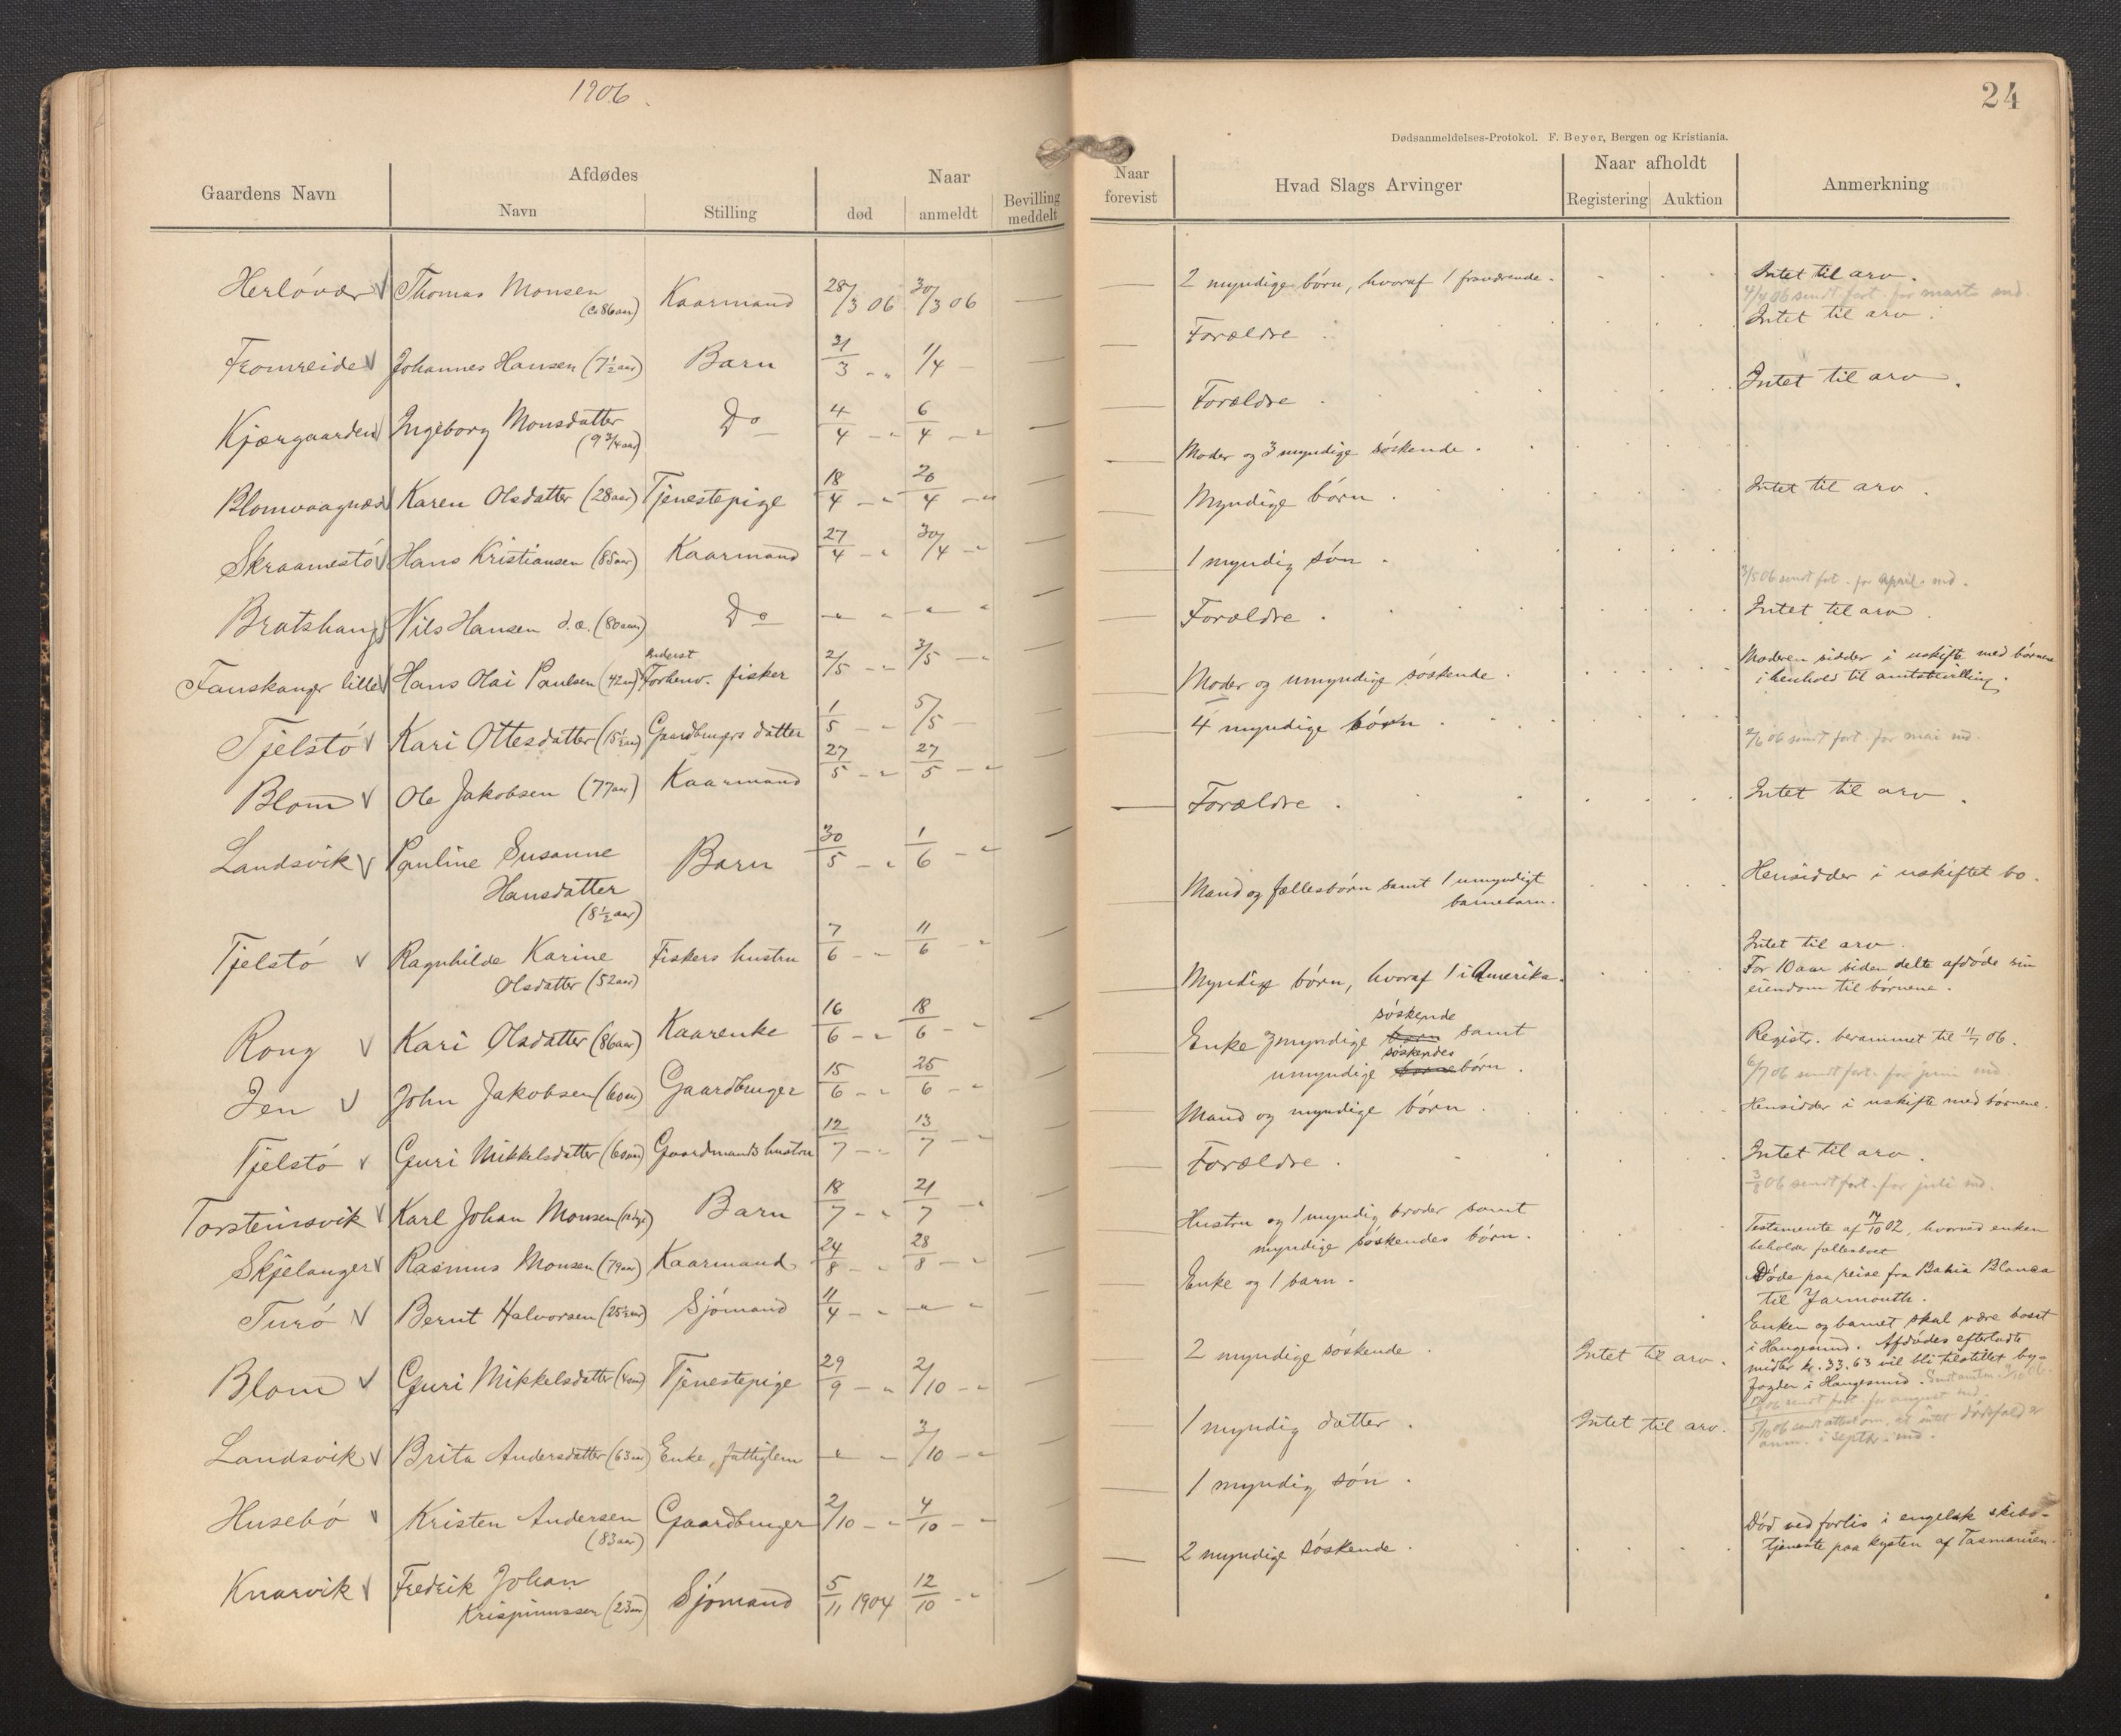 1906
24
Dødsanmeldelses-Protokol. F. Beyer, Bergen og Kristiania.
Gaardens Navn
Afdødes
Navn
Stilling
Naar
død
anmeldt
Bevilling meddelt
Naar forevist
Hvad Slags Arvinger
Naar afholdt
Registering
Auktion
Anmerkning
Herløvær V Thomas Monsen (c. 86 aar) Kaarmand 28/3 06 30/3 06 —
Fromreide V Johannes Hansen (7½ aar) Barn 31/3 - „ 1/4 - —
Kjærgaarden V Ingeborg Monsdatter (9 3/4 aar) Do 4/4 - „ 6/4 - „ —
Blomvaagnæs V Karen Olsdatter (28 aar) Tjenestepige 18/4 - „ 20/4 - „ —
Skraamestø V Hans Kristiansen (85 aar) Kaarmand 27/4 - „ 30/4 - „ —
Bratshaug V Nils Hansen d.æ. (80 aar) Do - „ - „ —
Fauskanger lille V Hans Olai Paulsen (42 aar) Inderst Forhenv. fisker 2/5 - „ 3/5 - „ —
Tjelstø V Kari Ottesdatter (15½ aar) Gaardbrugers datter 1/5 - „ 5/5 - —
Blom V Ole Jakobsen (77 aar) Kaarmand 27/5 - „ 27/5 - „ —
Landsvik V Pauline Susanne
Hansdatter
(8½ aar) Barn 30/5 - „ 1/6 - „ —
Tjelstø V Ragnhilde Karine
Olsdatter (52 aar) Fiskers hustru 7/6 - „ 11/6 - „ —
Rong V Kari Olsdatter (86 aar) Kaarenke 16/6 - „ 18/6 - „ —
Jen V John Jakobsen (60 aar) Gaardbruger 15/6 - „ 25/6 - „ —
Tjelstø V Guri Mikkelsdatter (60 aar) Gaardmands hustru 12/7 - „ 13/7 - „ —
Torsteinsvik V Karl Johan Monsen Barn 18/7 - „ 21/7 - „ —
Skjelanger V Rasmus Monsen (79 aar) Kaarmand 24/8 - „ 28/8 - „ —
Turø V Bernt Halvorsen (25½ aar) Sjømand 11/4 - „ - „ —
Blom V Guri Mikkelsdatter Tjenestepige 29/9 - „ 2/10 - „ —
Landsvik V Brita Andersdatter (63 aar) Enke, fattiglem - „ 3/10 - „
Husebø V Kristen Andersen
(83 aar) Gaardbruger 2/10 - „ 4/10 - „
Knarvik V Fredrik Johan
Krispinussen (23 aar) Sjømand 5/11 1904 12/10 - „ —
2 myndige børn, hvoraf 1 fraværende.
Forældre .
Forældre .
Moder og 3 myndige søskende .
Myndige børn .
1 myndig søn .
Forældre .
Moder og umyndige søskende .
4 myndige børn .
Forældre .
Mand og fællesbørn samt 1 umyndigt
barnebarn.
Myndige børn, hvoraf 1 i Amerika.
søskende
Enke 3 myndige børn samt
søskendes
umyndige børnebørn .
Mand og myndige børn .
Forældre .
Hustru og 1 myndig broder samt
myndige søskendes børn .
Enke og 1 barn .
2 myndige søskende . Intet til arv .
1 myndig datter . Intet til arv .
1 myndig søn .
2 myndige søskende .
Intet til arv .
4/4 06 sendt fort. for marts md.
Intet til arv .
Intet til arv .
Intet til arv .
3/5 06 sendt fort. for april md.
Intet til arv .
Moderen sidder i uskifte med børnene
i henhold til amtsbevilling .
2/6 06 sendt fort. for mai md.
Intet til arv .
Hensidder i uskiftet bo .
Intet til arv .
For 10 aar siden delte afdøde sin
eiendom til børnene .
Registr. berammet til 11/7 06.
6/7 06 sendt fort. for juni md
Hensidder i uskifte med børnene.
Intet til arv .
3/8 06 sendt fort. for juli md.
Testamente af 14/10 02, hvorved enken
beholder fællesboet
Døde paa reise fra Bahia Blanca
til Yarmouth.
Enken og barnet skal være bosat
i Haugesund. Afdødes efterladte
midler kr. 33.63 vil bli tilstillet by-
fogden i Haugesund.
06 sendt fort. for august md.
5/10 06 sendt attest om, at intet dødsfald er
anm. i septbr. md.
Død ved forlis i engelsk skibs-
tjeneste paa kysten af Tasmanien.